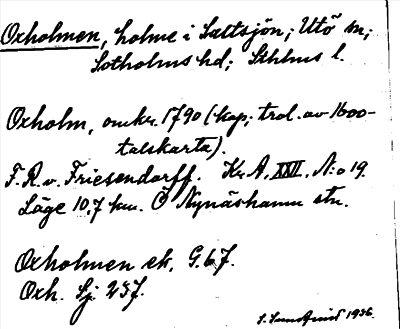 Oxholmen, holme i Saltsjön; Utö sn;
Sotholms hd; Sthlms l.
Oxholm, omkr. 1790 (kop; trol. av 1600-
talskarta).
F. R. v. Friesendorff. Kr. A. XXII, N:o 19.
Läge 10,7 km. Ö Nynäshamn stn.
Oxholmen ek. G. 67.
Oxh. Sj. 237.
1936.